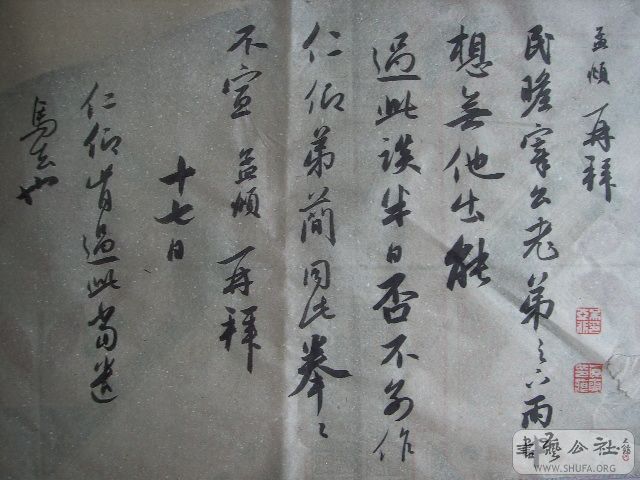 孟頫 再拜
民瞻宰公老弟之下雨
想無他出能
過此談半日否不別作
仁仰弟簡同此拳々
不宣 孟頫 再拜
十七日
仁仰肯過此當遣
馬去也
書藝公社
WWW.SHUFA.ORG